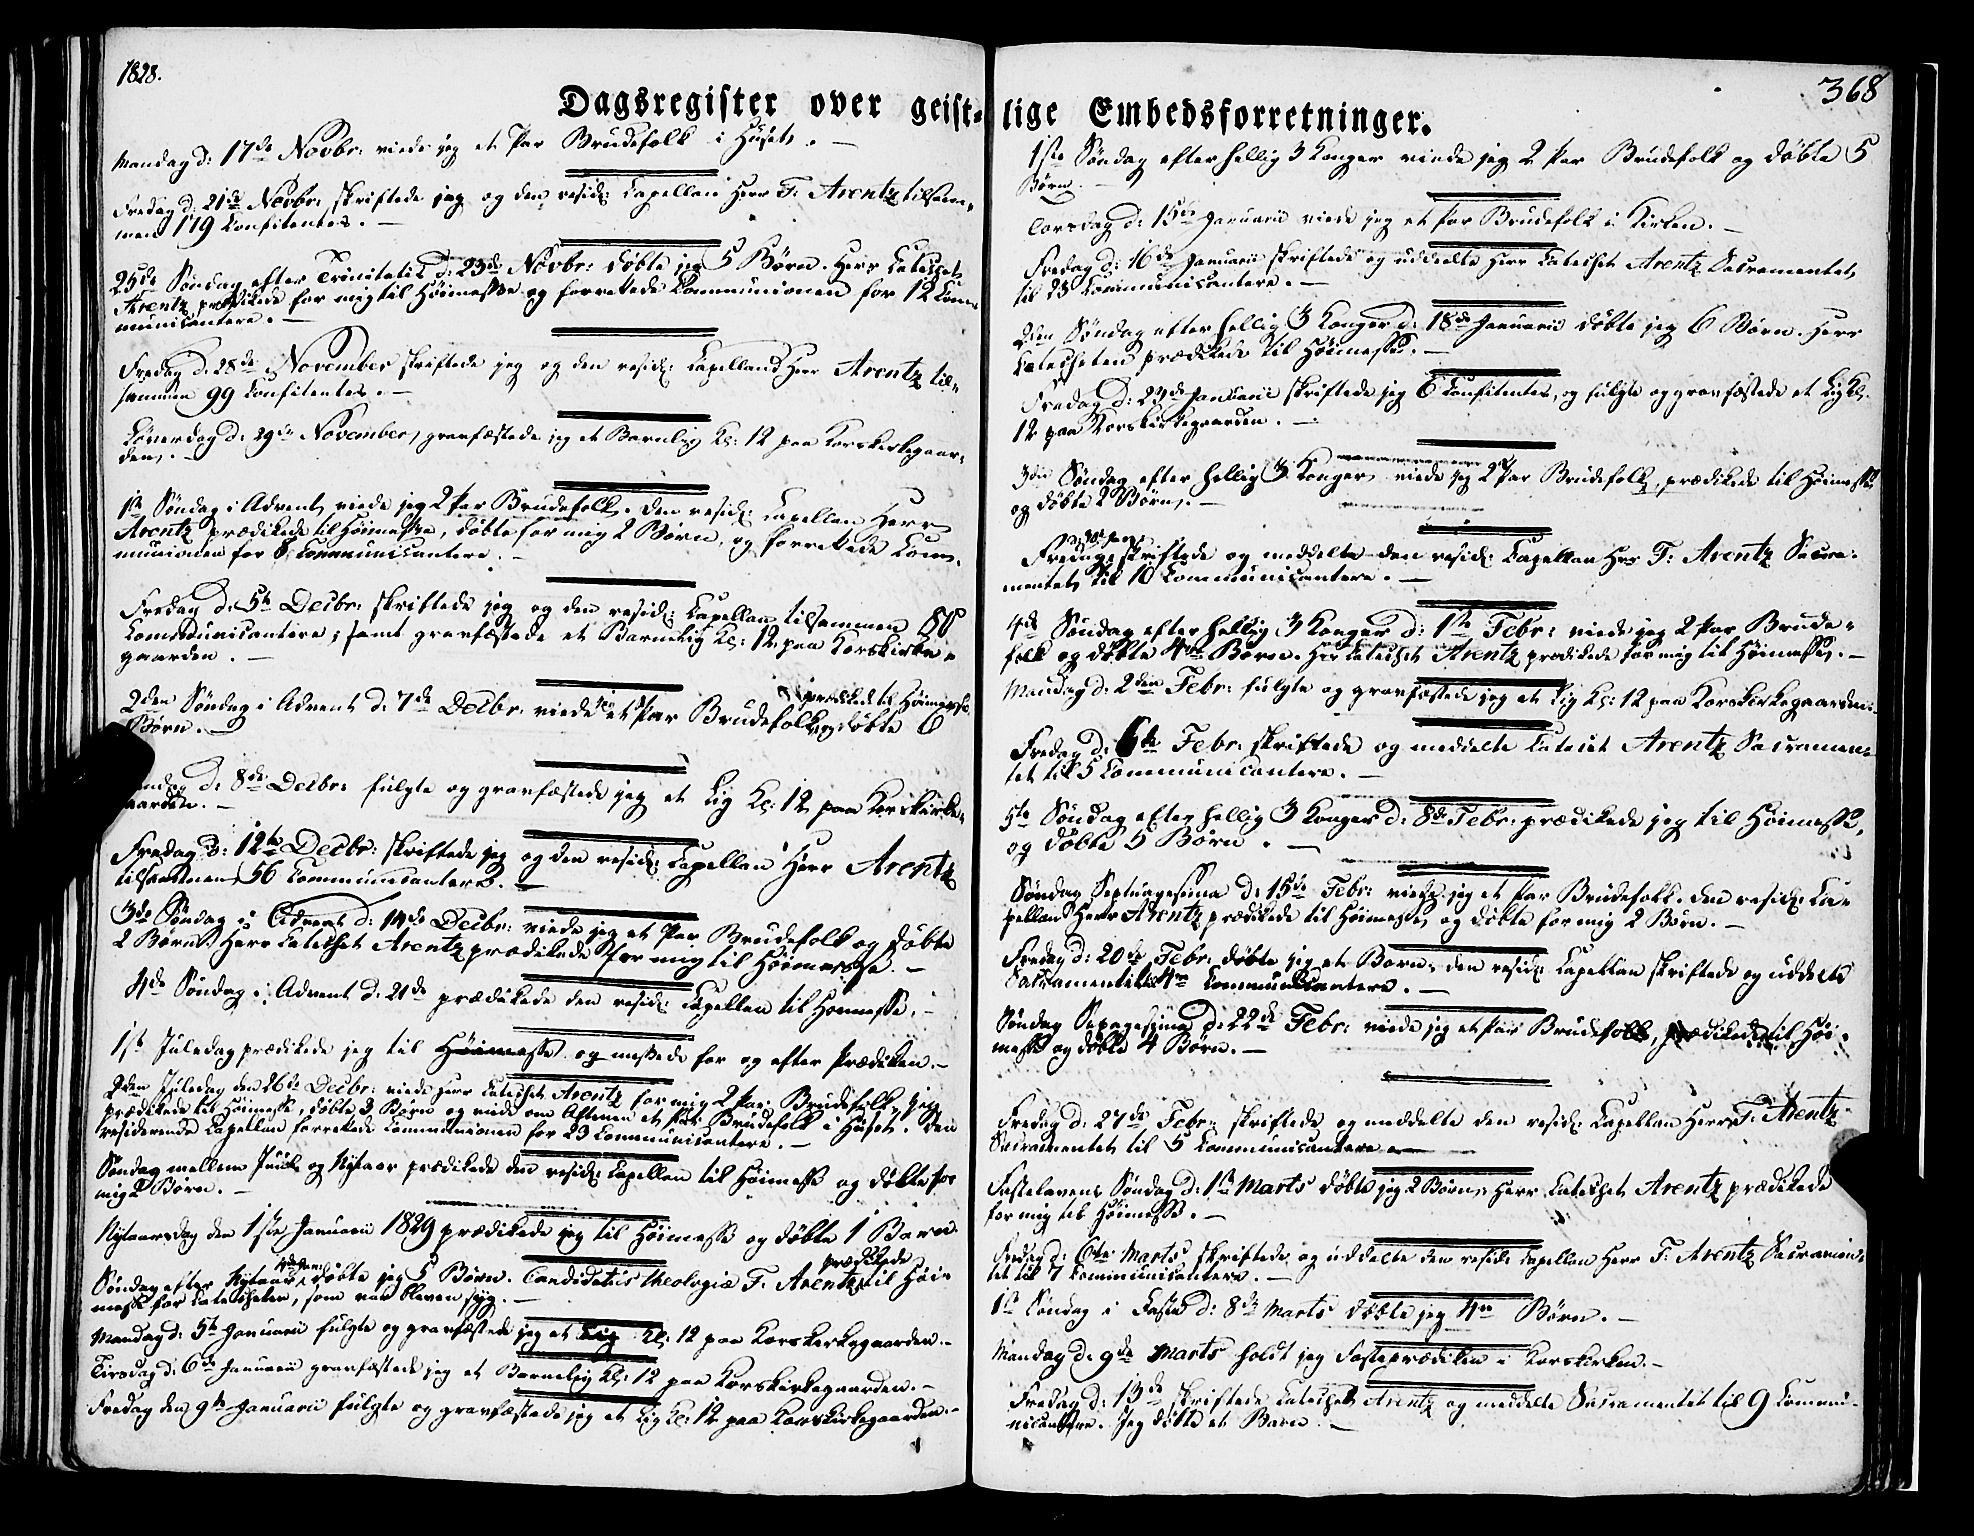 1828.
Dagsregister over geist-
Mandag d: 17de Novbr: viede jeg et Par Brudefolk i Huset. —
Fredag d: 21de Novbr: skriftede jeg og den resid: Capellan Herr F. Arentz tilsam-
men 119 Confitentes. —
25de Søndag efter Trinitatis d: 23de Novbr: døbte jeg 5 Børn. Herr Catechet
Arentz prædikede for mig til Høimesse og forrettede Communionen for 12 Com-
municantere. —
Fredag d. 28de November skriftede jeg og den resid: Capellan Herr Arentz til-
sammen 99 Confitentes. —
Løverdag d. 29de November gravfæstede jeg et Barnelig Kl: 12 paa Korskirkegaar-
den. —
1ste Søndag i Advent viede jeg 2 Par Brudefolk. Den resid: Capellan Herr
Arentz prædikede til Høimesse, døbte for mig 2 Børn, og forrettede Com-
munionen for 8 Communicantere. —
Fredag d: 5te Decbr: skriftede jeg og den resid: Capellan tilsammen 80
Communicantere; samt gravfæstede et Barnelig Kl: 12 paa Korskirke-
gaarden. —
prædikede til Høimesse
2den Søndag i Advent d. 7de Decbr. viede jeg et Par Brudefolk og døbte 6
Børn. —
d: 8de Decbr: fulgte og gravfæstede jeg et Lig Kl: 12 paa Korskirke-
gaarden. —
Fredag d: 12te Decbr: skriftede jeg og den resid: Capellan Herr Arentz
tilsammen 56 Communicantere. —
3de Søndag i Advent d: 14de Decbr: viede jeg et Par Brudefolk og døbte
2 Børn. Herr Catechet Arentz prædikede for mig til Høimesse. —
4de Søndag i Advent d. 21de prædikede den resid: Capellan til Høimesse. —
1ste Juledag prædikede jeg til Høimesse og messede for og efter Prædiken. —
2den Juledag den 26de Decbr: viede Herr Catechet Arentz for mig 2 Par Brudefolk, jeg
prædikede til Høimesse, døbte 3 Børn og viede om Aftenen et Par Brudefolk i Huset. Den
residerende Capellan forrettede Communionen for 23 Communicantere. —
Søndag mellem Juul og Nytaar prædikede den resid: Capellan til Høimesse og døbte for
mig 2 Børn. —
Nytaarsdag den 1ste Januarii 1829 prædikede jeg til Høimesse og døbte 1 Barn
prædikede
Søndag efter Nytaar døbte jeg 5 Børn. Candidatus theologiæ F. Arentz til Høi-
messe for Catecheten, som var bleven syg. —
Mandag d: 5te Januarii fulgte og gravfæstede jeg et Lig Kl: 12 paa Korskirkegaarden. —
Tirsdag d: 6te Januarii gravfæstede jeg et Barnelig Kl: 12 paa Korskirkegaarden. —
Fredag den 9de Januarii fulgte og gravfæstede jeg et Lig Kl: 12 paa Korskirkegaarden. —
368
lige Embedsforretninger.
1ste Søndag efter hellig 3 Konger viede jeg 2 Par Brudefolk og døbte 5
Børn. —
Torsdag d: 15de Januarii viede jeg et Par Brudefolk i Kirken. —
Fredag d: 16de Januarii skriftede og uddeelte Herr Catechet Arentz Sacramentet
til 23 Communicantere. —
2den Søndag efter hellig 3 Konger d: 18de Januarii døbte jeg 6 Børn. Herr
Catecheten prædikede til Høimesse. —
Fredag d: 23de Januarii skriftede jeg 6 Confitentes, og fulgte og gravfæstede et Lig Kl.
12 paa Korskirkegaarden. —
3die Søndag efter hellig 3 Konger viede jeg 2 Par Brudefolk, prædikede til Høimesse
og døbte 2 Børn. —
Fredag skriftede og meddelte den resid: Capellan Herr F: Arentz Sacra-
mentet til 10 Communicantere. —
4de Søndag efter hellig 3 Konger d: 1ste Febr: viede jeg 2 Par Brude-
folk og døbte 4re Børn. Herr Catechet Arentz prædikede for mig til Høimesse. —
Mandag d: 2den Febr: fulgte og gravfæstede jeg et Lig Kl: 12 paa Korskirkegaarden. —
Fredag d: 6te Febr: skriftede og meddelte Catechet Arentz Sacramen-
tet til 5 Communicantere. —
5te Søndag efter hellig 3 Konger d: 8de Febr: prædikede jeg til Høimesse,
og døbte 5 Børn. —
Søndag Septuagesima d: 15de Febr: viede jeg et Par Brudefolk. Den resid: Ca-
pellan Herr Arentz prædikede til Høimesse, og døbte for mig 2 Børn. —
Fredag d: 20de Febr. døbte jeg et Barn, den resid: Capellan skriftede og uddelte
Sacramentet til 4re Communicantere. —
Søndag Sexagesima d: 22de Febr: viede jeg et Par Brudefolk, prædikede til Høi-
messe og døbte 4 Børn. —
Fredag d: 27de Febr: skriftede og meddelte den resid: Capellan Herr F. Arentz
Sacramentet til 5 Communicantere —
Fastelavens Søndag d: 1ste Marts døbte jeg 2 Børn, Herr Catechet Arentz prædikede
for mig til Høimesse. —
Fredag d: 6te Marts skriftede og uddelte den resid: Capellan Herr F. Arentz Sacramen-
tet til 7 Communicantere. —
1ste Søndag i Faste d: 8de Marts døbte jeg 4re Børn. —
Mandag d. 9de Marts holdt jeg Fasteprædiken i Korskirken. —
Fredag d: 13de skriftede Catechet Arentz og meddelte Sacramentet til 9 Commu-
nicantere. Jeg døbte et Barn. —